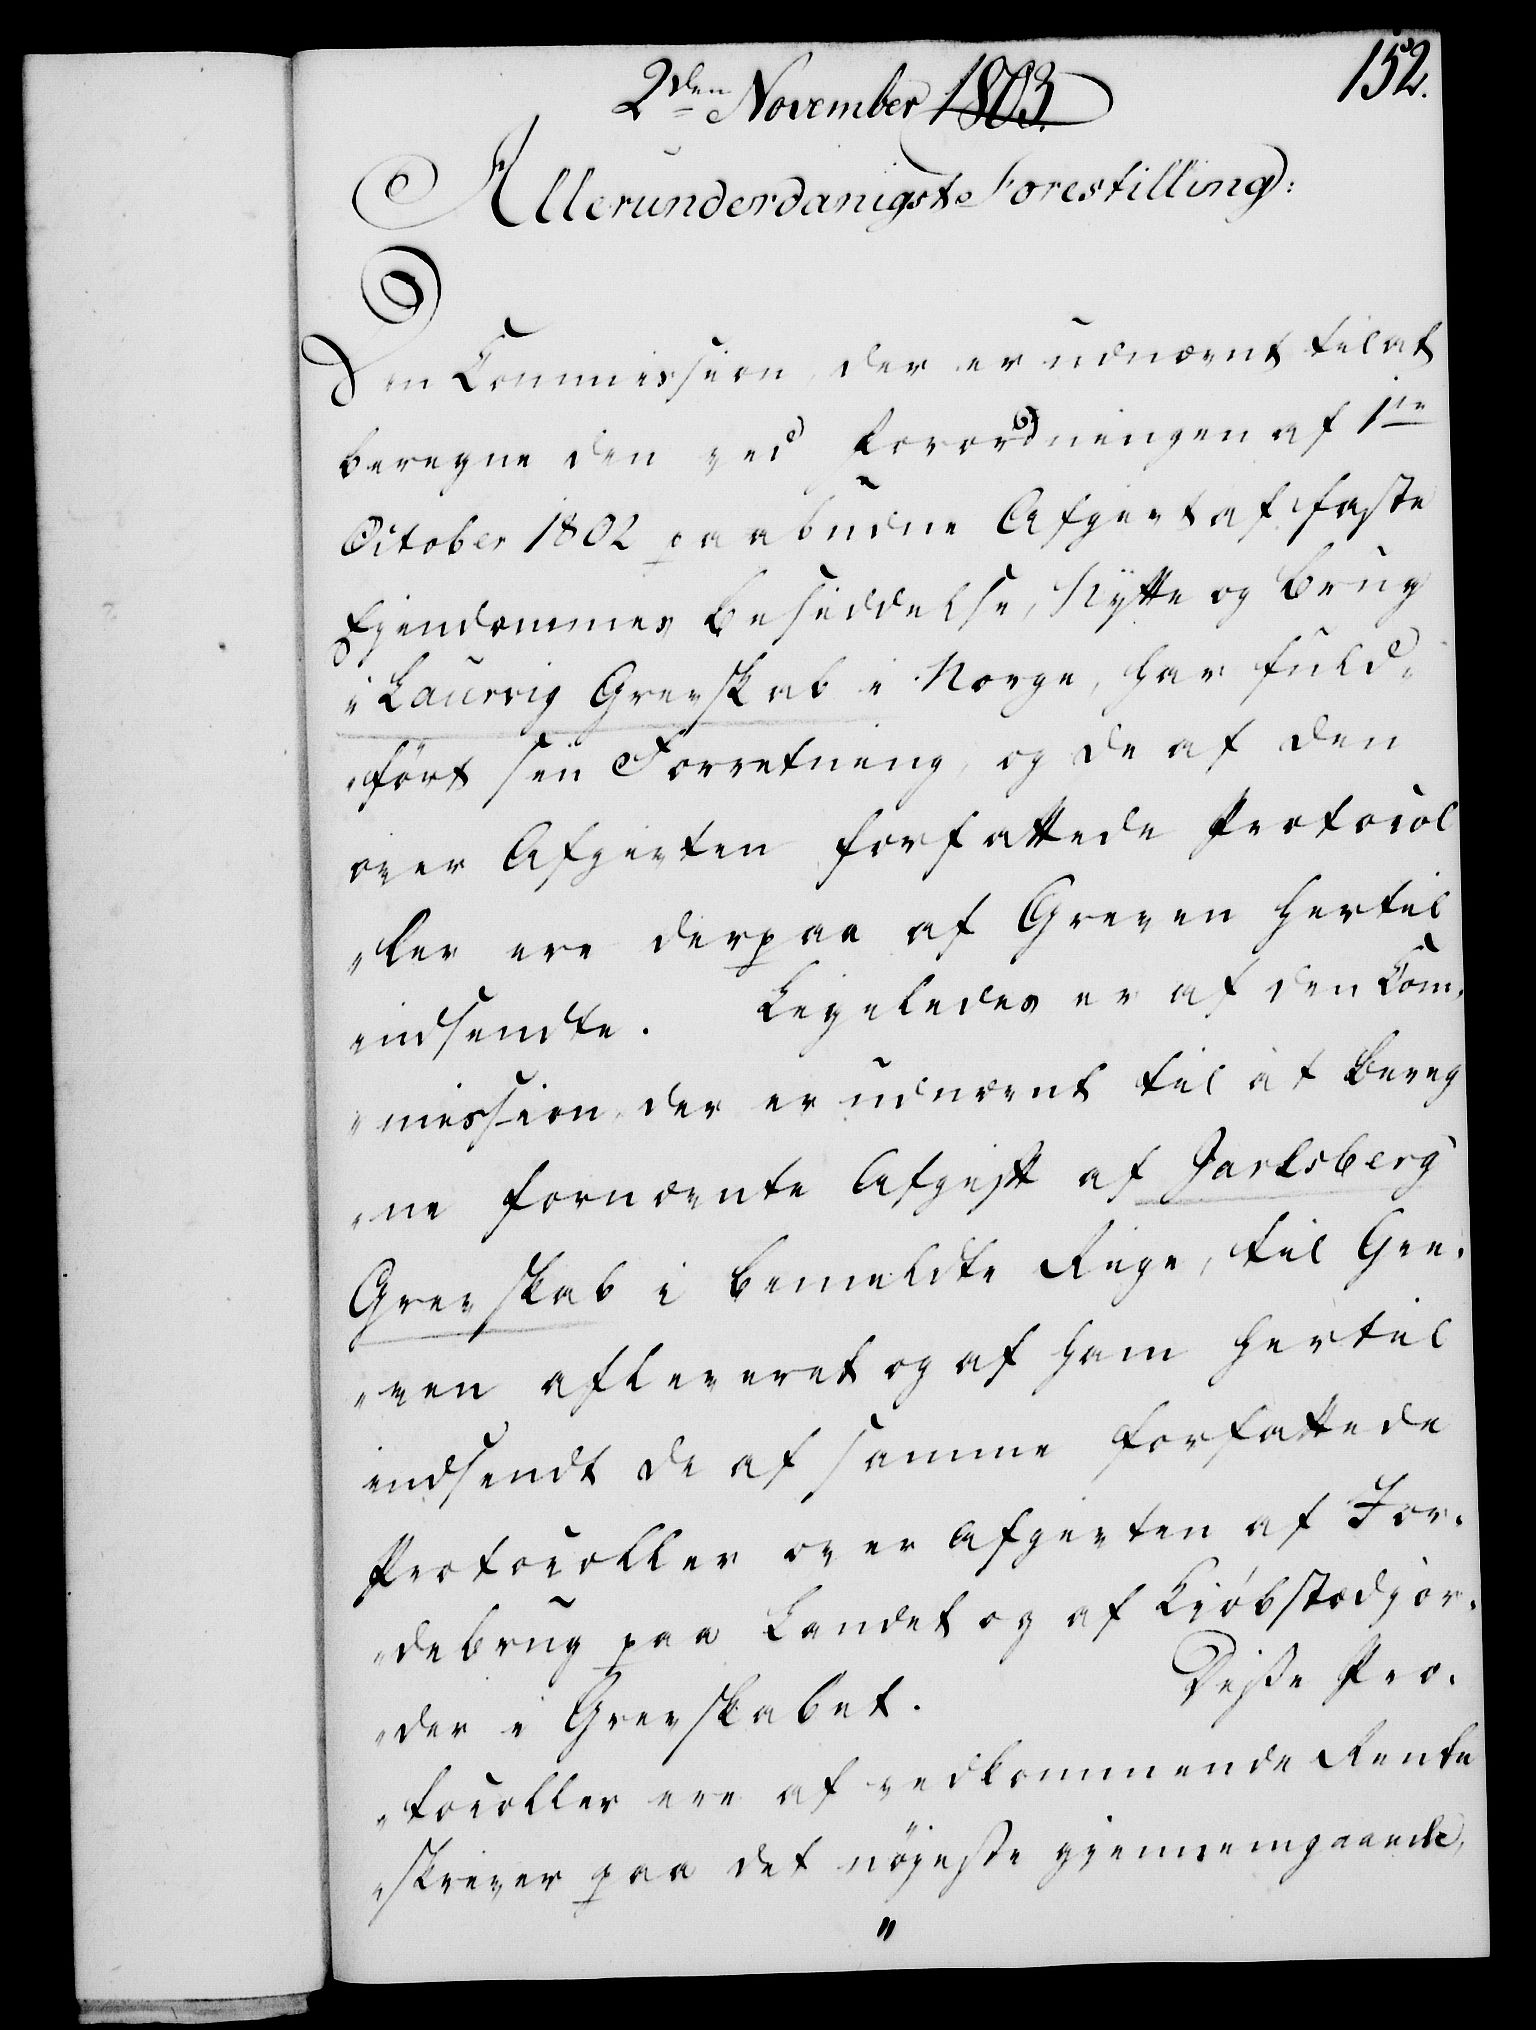 152.
2den November 1803.
Allerunderdanigst Forestilling:
Den Commission, der er udnævnt til at
beregne den ved Forordningen af 1te
October 1802 paabudne Afgivt af faste
Ejendommes Besiddelse, Nytte og Brug
i Laurvig Grevskab i Norge, har fuld-
"ført sin Forretning, og de af den
over Afgivten forfattede Protocol
"ler ere derpaa af Greven hertil
indsendte. Ligeledes er af den Com-
"mission, der er udnævnt til at bereg
"ne fornævnte Afgift af Jarlsberg
Grevskab i bemeldte Rige, til Gre-
"ven afleveret og af ham hertil
indsendt de af samme forfattede
Protocoller over Afgivten af Jor-
"debrug paa Landet og af Kiøbstædjor-
"der i Grevskabet. Disse Pro-
"tocoller ere af vedkommende Rente
"skriver paa det nøjeste gjennemgaaede,
"